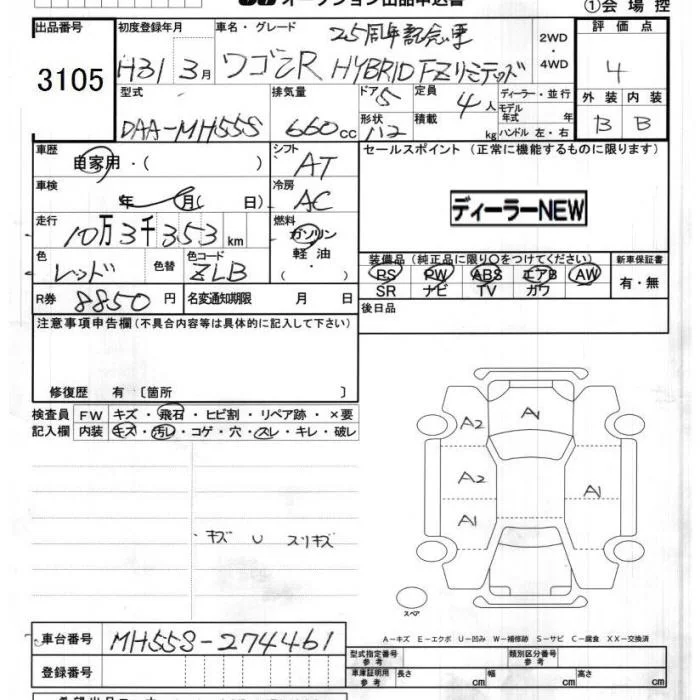 オークション出品申込書
①会場控
出品番号
3105
初度登録年月
H31 3月
車名・グレード
25周年記念車
ワゴンR HYBRID FZリミテッド
2WD・4WD
評価点
4
外装 内装
B B
型式
DAA-MH55S
排気量
660cc
ドア 5
形状
定員 4人
積載 kg
ディーラー・並行
モデル年式 年
ハンドル 左・右
車歴
自家用・( )
シフト
AT
車検
年 月( 日)
冷房
AC
走行
10万3千353km
燃料
ガソリン
軽油
・( )
色
レッド
色替
色コード
ZLB
R券 8850円
名変通知期限 月 日
セールスポイント (正常に機能するものに限ります)
ディーラーNEW
装備品(純正品に限り○をつけてください)
PS PW ABS エアB AW
SR ナビ TV カワ
新車保証書
有・無
後日品
注意事項申告欄(不具合内容等は具体的に記入して下さい)
修復歴 有 〔箇所 〕
検査員記入欄
FW キズ・飛石・ヒビ割・リペア跡・×要
内装 キズ・汚レ・コゲ・穴・スレ・キレ・破レ
キズ U スリキズ
A2
A2
A1
A1
スペア
A-キズ E-エクボ U-凹み W-補修跡 S-サビ C-腐食 XX-交換済
車台番号 MH55S-274461
登録番号
型式指定番号 参考
類別区分番号 参考
車庫証明用 参考
長さ cm 幅 cm 高さ cm